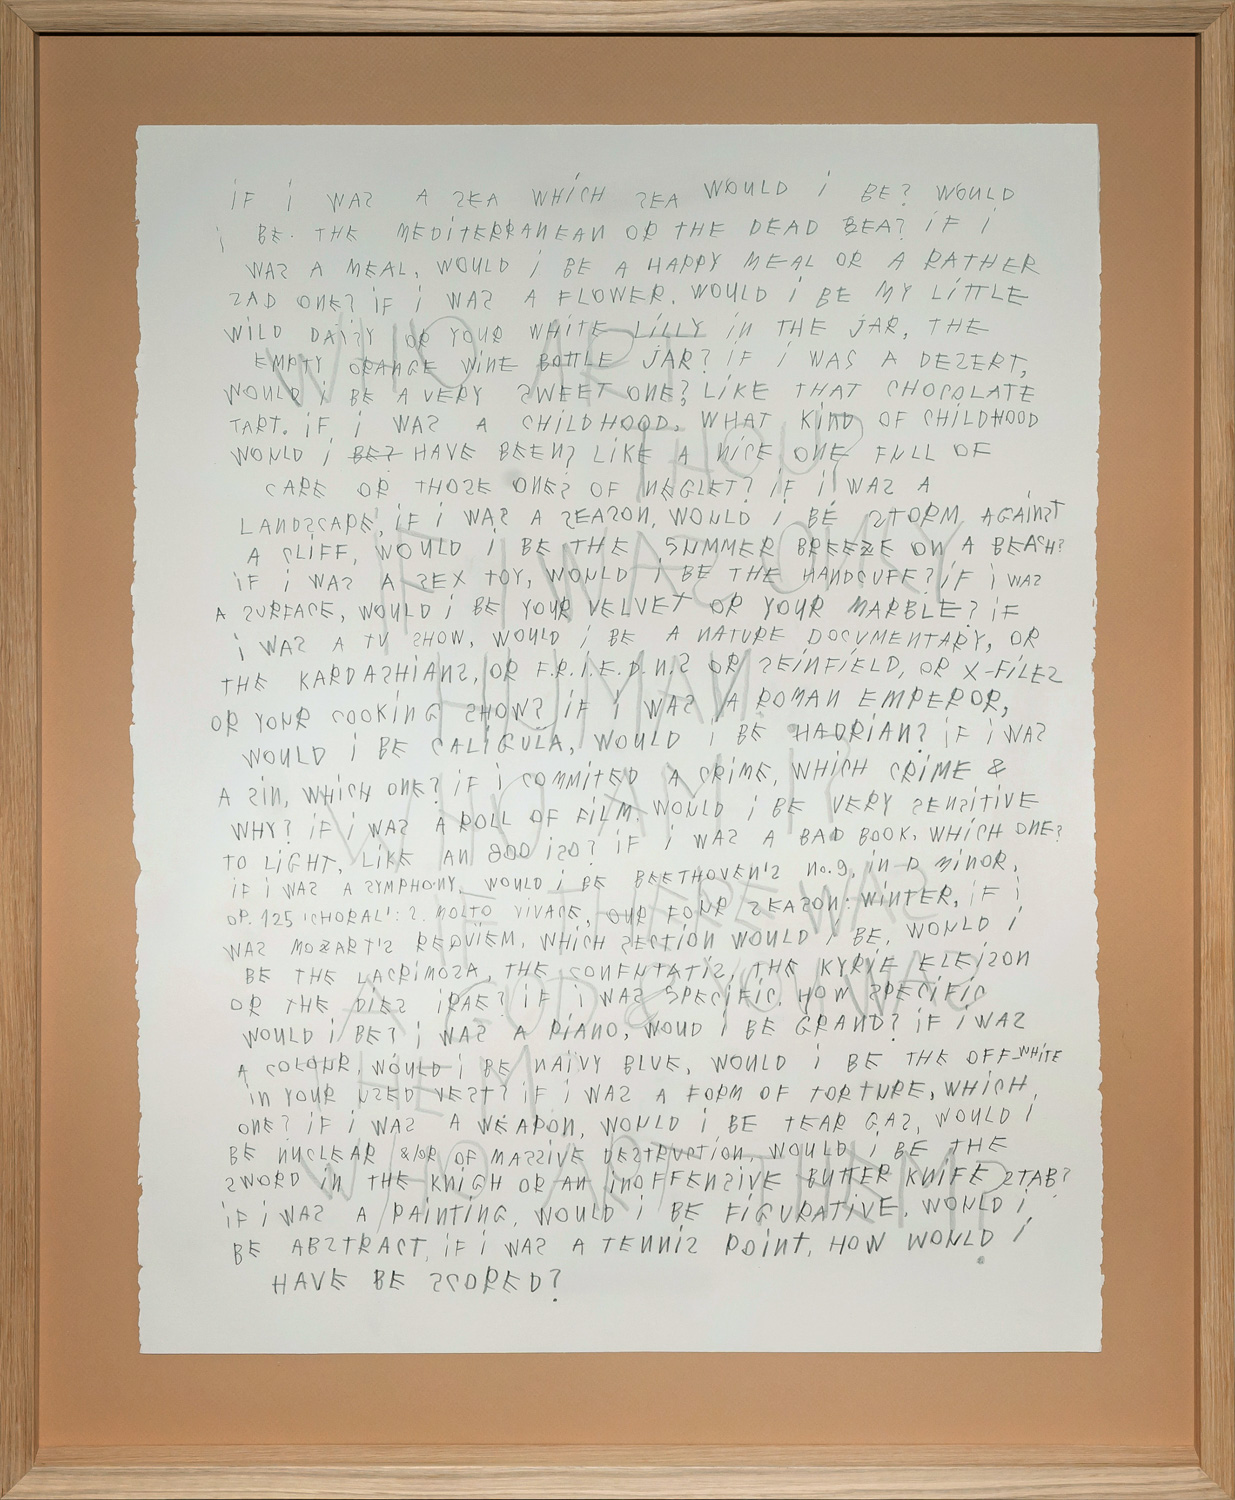 iF i WAS A SEA WHiCH SEA WOULD i BE? WOULD
i BE THE MEDiTERRANEAN OR THE DEAD SEA? iF i
WAS A MEAL, WOULD i BE A HAPPY MEAL OR A RATHER
SAD ONE? iF i WAS A FLOWER, WOULD i BE MY LiTTLE
WiLD DAiSY OR YOUR WHiTE LiLLY iN THE JAR, THE
EMPTY ORANGE WiNE BOTTLE JAR? iF i WAS A DEZERT,
WOULD i BE A VERY SWEET ONE? LiKE THAT CHOCOLATE
TART. iF i WAS A CHiLDHOOD, WHAT KiND OF CHiLDHOOD
WOULD i BE? HAVE BEEN? LiKE A NiCE ONE FULL OF
CARE OR THOSE ONES OF NEGLET? iF i WAS A
LANDSCAPE, iF i WAS A SEASON, WOULD i BE STORM AGAiNST
A CLiFF, WOULD i BE THE SUMMER BREEZE ON A BEACH?
iF i WAS A SEX TOY, WOULD i BE THE HANDCUFF? iF i WAS
A SURFACE, WOULD i BE YOUR VELVET OR YOUR MARBLE? iF
i WAS A TV SHOW, WOULD i BE A NATURE DOCUMENTARY, OR
THE KARDASHiANS, OR F.R.i.E.D.N.S OR SEiNFiELD, OR X-FiLES
OR YOUR COOKiNG SHOW? iF i WAS A ROMAN EMPEROR,
WOULD i BE CALiGULA, WOULD i BE HADRiAN? iF i WAS
A SiN, WHiCH ONE? iF i COMMiTED A CRiME, WHiCH CRiME &
WHY? iF i WAS A ROLL OF FiLM. WOULD i BE VERY SENSiTiVE
TO LiGHT, LiKE AN 800 iSO? iF i WAS A BAD BOOK, WHiCH ONE?
iF i WAS A SYMPHONY, WOULD i BE BEETHOVEN'S No.9, iN D MiNOR,
OP. 125 'CHORAL': 2. MOLTO ViVACE, OUR FOUR SEASON: WiNTER, iF i
WAS MOZART'S REQUiEM, WHiCH SECTiON WOULD i BE, WOULD i
BE THE LACRiMOSA, THE CONFUTATiS, THE KYRiE ELEiSON
OR THE DiES iRAE? iF i WAS SPECiFiC, HOW SPECiFiC
WOULD i BE? i WAS A PiANO, WOUD i BE GRAND? iF i WAS
A COLOUR, WOULD i BE NAiVY BLUE, WOULD i BE THE OFF-WHiTE
iN YOUR USED VEST? iF i WAS A FORM OF TORTURE, WHiCH
ONE? iF i WAS A WEAPON, WOULD i BE TEAR GAS, WOULD i
BE NUCLEAR &/OR OF MASSiVE DESTRUCTiON, WOULD i BE THE
SWORD iN THE KNiGH OR AN iNOFFENSiVE BUTTER KNiFE STAB?
iF i WAS A PAiNTiNG, WOULD i BE FiGURATiVE, WOULD i
BE ABSTRACT, iF i WAS A TENNiS POiNT, HOW WOULD i
HAVE BE SCORED?
WHO ART
THOU?
IF I WAS ONLY
HUMAN.
WHO AM I?
IF THERE WAS
A GOD & YOU WAS
THEM
WHO ART THEM?